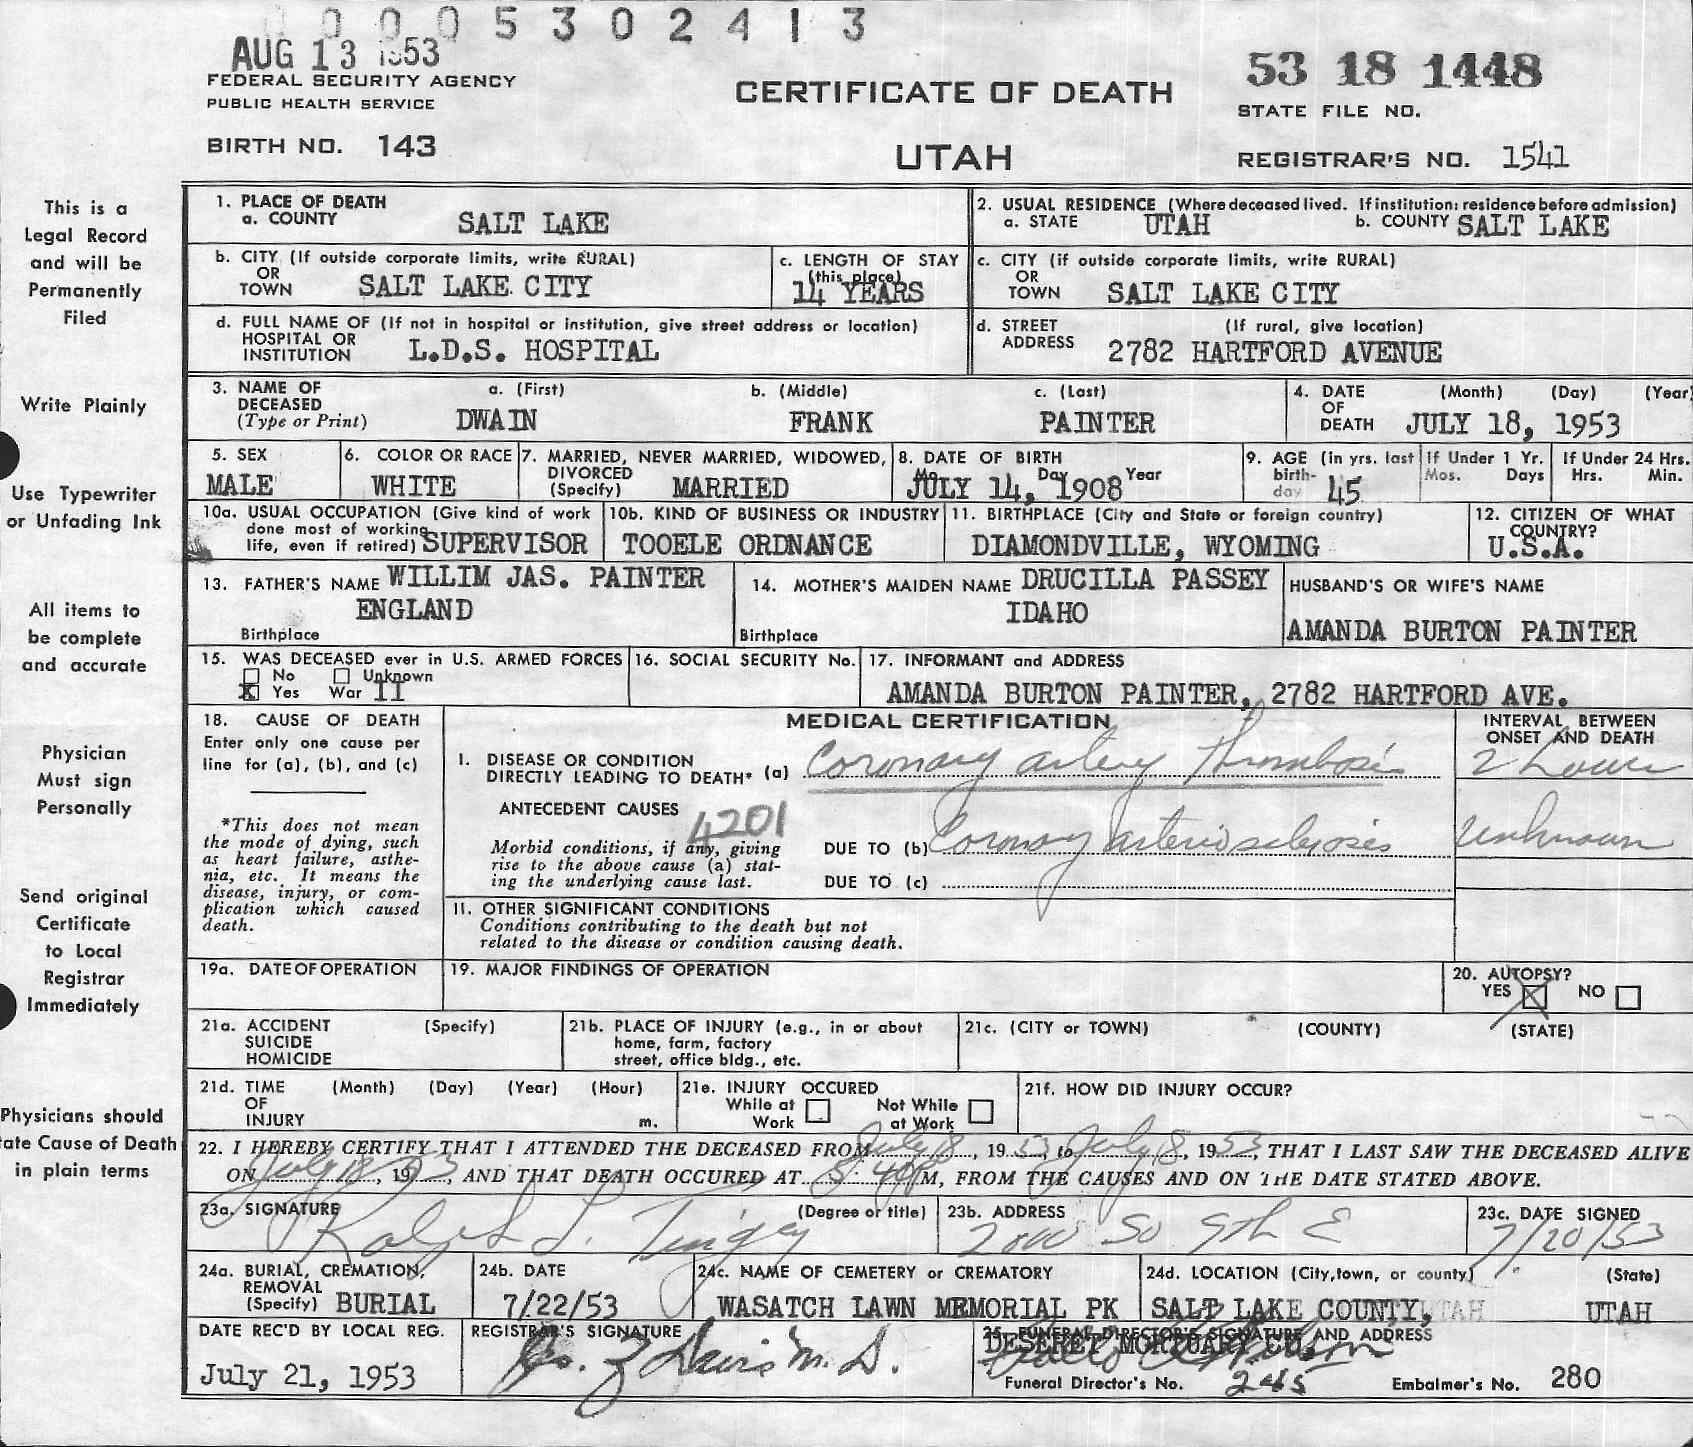 0005302413
AUG 13 1953
FEDERAL SECURITY AGENCY
PUBLIC HEALTH SERVICE
BIRTH NO. 143
CERTIFICATE OF DEATH
UTAH
53 18 1448
STATE FILE NO.
REGISTRAR'S NO. 1541
This is a
Legal Record
and will be
Permanently
Filed
Write Plainly
Use Typewriter
or Unfading Ink
All items to
be complete
and accurate
Physician
Must sign
Personally
Send original
Certificate
to Local
Registrar
Immediately
Physicians should
ate Cause of Death
in plain terms
1. PLACE OF DEATH
a. COUNTY SALT LAKE
2. USUAL RESIDENCE (Where deceased lived. If institution: residence before admission)
a. STATE UTAH b. COUNTY SALT LAKE
b. CITY (If outside corporate limits, write RURAL)
OR
TOWN SALT LAKE CITY
c. LENGTH OF STAY
(this place)
14 YEARS
c. CITY (if outside corporate limits, write RURAL)
OR
TOWN SALT LAKE CITY
d. FULL NAME OF (If not in hospital or institution, give street address or location)
HOSPITAL OR
INSTITUTION L.D.S. HOSPITAL
d. STREET (If rural, give location)
ADDRESS 2782 HARTFORD AVENUE
3. NAME OF a. (First) b. (Middle) c. (Last)
DECEASED
(Type or Print) DWAIN FRANK PAINTER
4. DATE (Month) (Day) (Year)
OF
DEATH JULY 18, 1953
5. SEX
MALE
6. COLOR OR RACE
WHITE
7. MARRIED, NEVER MARRIED, WIDOWED,
DIVORCED
(Specify) MARRIED
8. DATE OF BIRTH
Mo. Day Year
JULY 14, 1908
9. AGE (in yrs. last
birth-
day 45
If Under 1 Yr.
Mos. Days
If Under 24 Hrs.
Hrs. Min.
10a. USUAL OCCUPATION (Give kind of work
done most of working
life, even if retired) SUPERVISOR
10b. KIND OF BUSINESS OR INDUSTRY
TOOELE ORDNANCE
11. BIRTHPLACE (City and State or foreign country)
DIAMONDVILLE, WYOMING
12. CITIZEN OF WHAT
COUNTRY?
U.S.A.
13. FATHER'S NAME WILLIM JAS. PAINTER
ENGLAND
Birthplace
14. MOTHER'S MAIDEN NAME DRUCILLA PASSEY
IDAHO
Birthplace
HUSBAND'S OR WIFE'S NAME
AMANDA BURTON PAINTER
15. WAS DECEASED ever in U.S. ARMED FORCES
No Unknown
X Yes War II
16. SOCIAL SECURITY No.
17. INFORMANT and ADDRESS
AMANDA BURTON PAINTER, 2782 HARTFORD AVE.
18. CAUSE OF DEATH
Enter only one cause per
line for (a), (b), and (c)
*This does not mean
the mode of dying, such
as heart failure, asthe-
nia, etc. It means the
disease, injury, or com-
plication which caused
death.
MEDICAL CERTIFICATION
INTERVAL BETWEEN
ONSET AND DEATH
I. DISEASE OR CONDITION
DIRECTLY LEADING TO DEATH* (a) Coronary artery Thrombosis 2 hours
ANTECEDENT CAUSES
4201
Morbid conditions, if any, giving
rise to the above cause (a) stat-
ing the underlying cause last.
DUE TO (b) Coronary arteriosclerosis Unknown
DUE TO (c)
II. OTHER SIGNIFICANT CONDITIONS
Conditions contributing to the death but not
related to the disease or condition causing death.
19a. DATE OF OPERATION
19. MAJOR FINDINGS OF OPERATION
20. AUTOPSY?
YES X NO
21a. ACCIDENT (Specify)
SUICIDE
HOMICIDE
21b. PLACE OF INJURY (e.g., in or about
home, farm, factory
street, office bldg., etc.
21c. (CITY or TOWN) (COUNTY) (STATE)
21d. TIME (Month) (Day) (Year) (Hour)
OF
INJURY m.
21e. INJURY OCCURED
While at Not While
Work at Work
21f. HOW DID INJURY OCCUR?
22. I HEREBY CERTIFY THAT I ATTENDED THE DECEASED FROM July 18, 1953 to July 18, 1953, THAT I LAST SAW THE DECEASED ALIVE
ON July 18, 1953, AND THAT DEATH OCCURED AT 5:40 P M, FROM THE CAUSES AND ON THE DATE STATED ABOVE.
23a. SIGNATURE (Degree or title)
Ralph L. Tingey
23b. ADDRESS
2000 So 9th E
23c. DATE SIGNED
7/20/53
24a. BURIAL, CREMATION,
REMOVAL
(Specify) BURIAL
24b. DATE
7/22/53
24c. NAME OF CEMETERY or CREMATORY
WASATCH LAWN MEMORIAL PK
24d. LOCATION (City, town, or county) (State)
SALT LAKE COUNTY, UTAH UTAH
DATE REC'D BY LOCAL REG.
July 21, 1953
REGISTRAR'S SIGNATURE
Geo. Z Davis M. D.
25. FUNERAL DIRECTOR'S SIGNATURE AND ADDRESS
DESERET MORTUARY CO.
Funeral Director's No. 245 Embalmer's No. 280